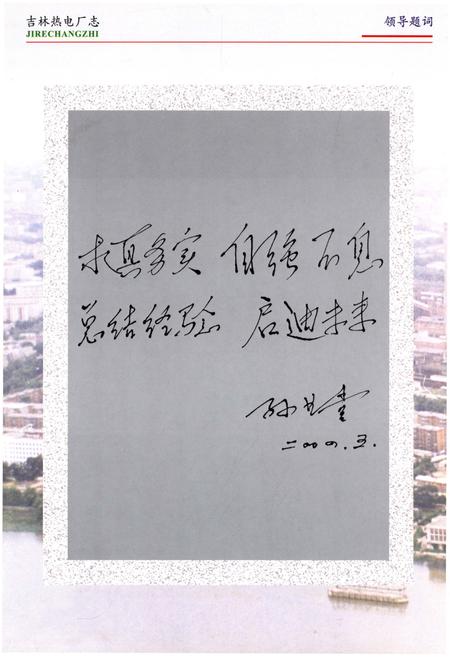 吉林热电厂志
JIRECHANGZHI
领导题词
求真务实 自强不息
总结经验 启迪未来
二〇〇〇.五.